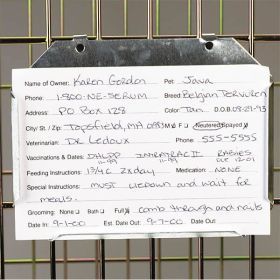 Name of Owner: Karen Gordon Pet: Java
Phone: 1-800-NE-SERUM Breed: Belgian Tervuren
Address: PO Box 128 Color: Tan D.O.B. 08-21-93
City/ St / Zip: Topsfield, MA M F Neutered Spayed
Veterinarian: Dr. Ledoux Phone: 555-5555
Vaccinations & Dates: DHLPP INTRATRAC II RABIES
11-99 11-99 DUE 12-01
Feeding Instructions: 1 3/4 C 2x day Medication: NONE
Special Instructions: must lie down and wait for
meals.
Grooming: None Bath Full comb through and nails
Date In: 9-1-00 Est. Date Out: 9-7-00 Date Out: